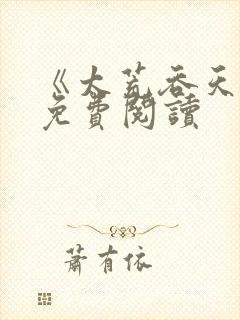 《大荒吞天
免費閱讀
蕭有依